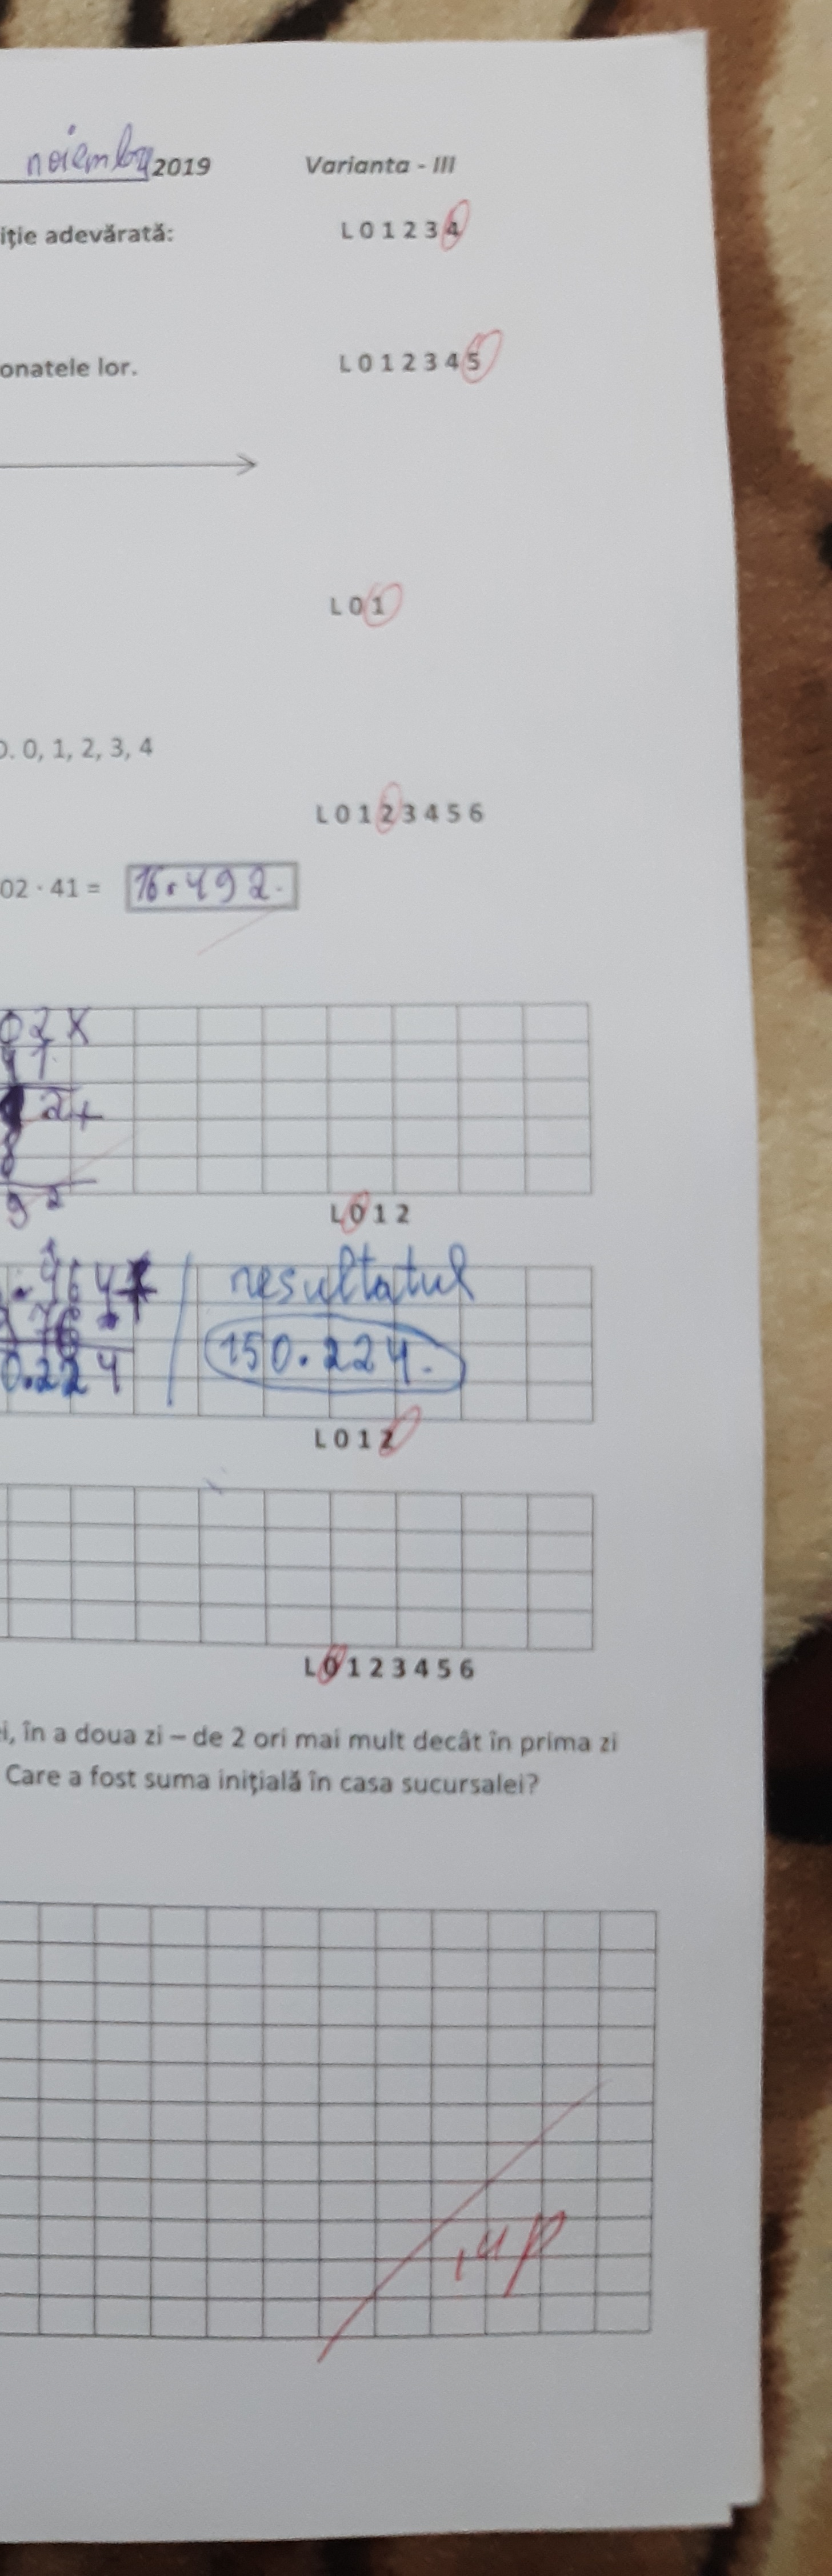 noiembry 2019 Varianta - III
iție adevărată: L 0 1 2 3 4
onatele lor. L 0 1 2 3 4 5
L 0 1
0. 0, 1, 2, 3, 4
L 0 1 2 3 4 5 6
02 · 41 = 16.492.
02 x
41
2+
8
92
L 0 1 2
resultatul
150.224.
0.224
L 0 1 2
L 0 1 2 3 4 5 6
i, în a doua zi – de 2 ori mai mult decât în prima zi
Care a fost suma inițială în casa sucursalei?